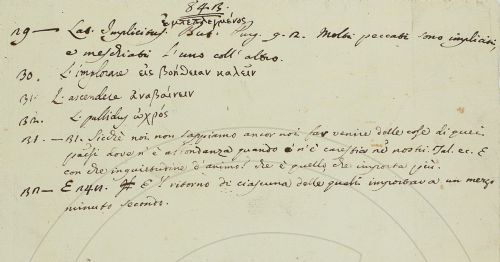 84.B.
ἐμπεπλεγμένος
29 — Lat. Implicitus. But. Purg. 9. 2. Molti peccati sono impliciti,
e meschiati l'uno coll'altro.
30. L'implorare εἰς βοήθειαν καλεῖν
31. L'ascendere ἀναβαίνειν
32. L. pallidus ὠχρός
31. — B1. Sicchè noi non sappiamo ancor noi far venire delle cose di quei
paesi dove n'è abbondanza quando n'è carestia ne' nostri. Tal. ec. E
con che inquietudine d'animo! che è quello che importa più.
32 — E 241. E 'l ritorno di ciascuna delle quali importava un mezzo
minuto secondo.